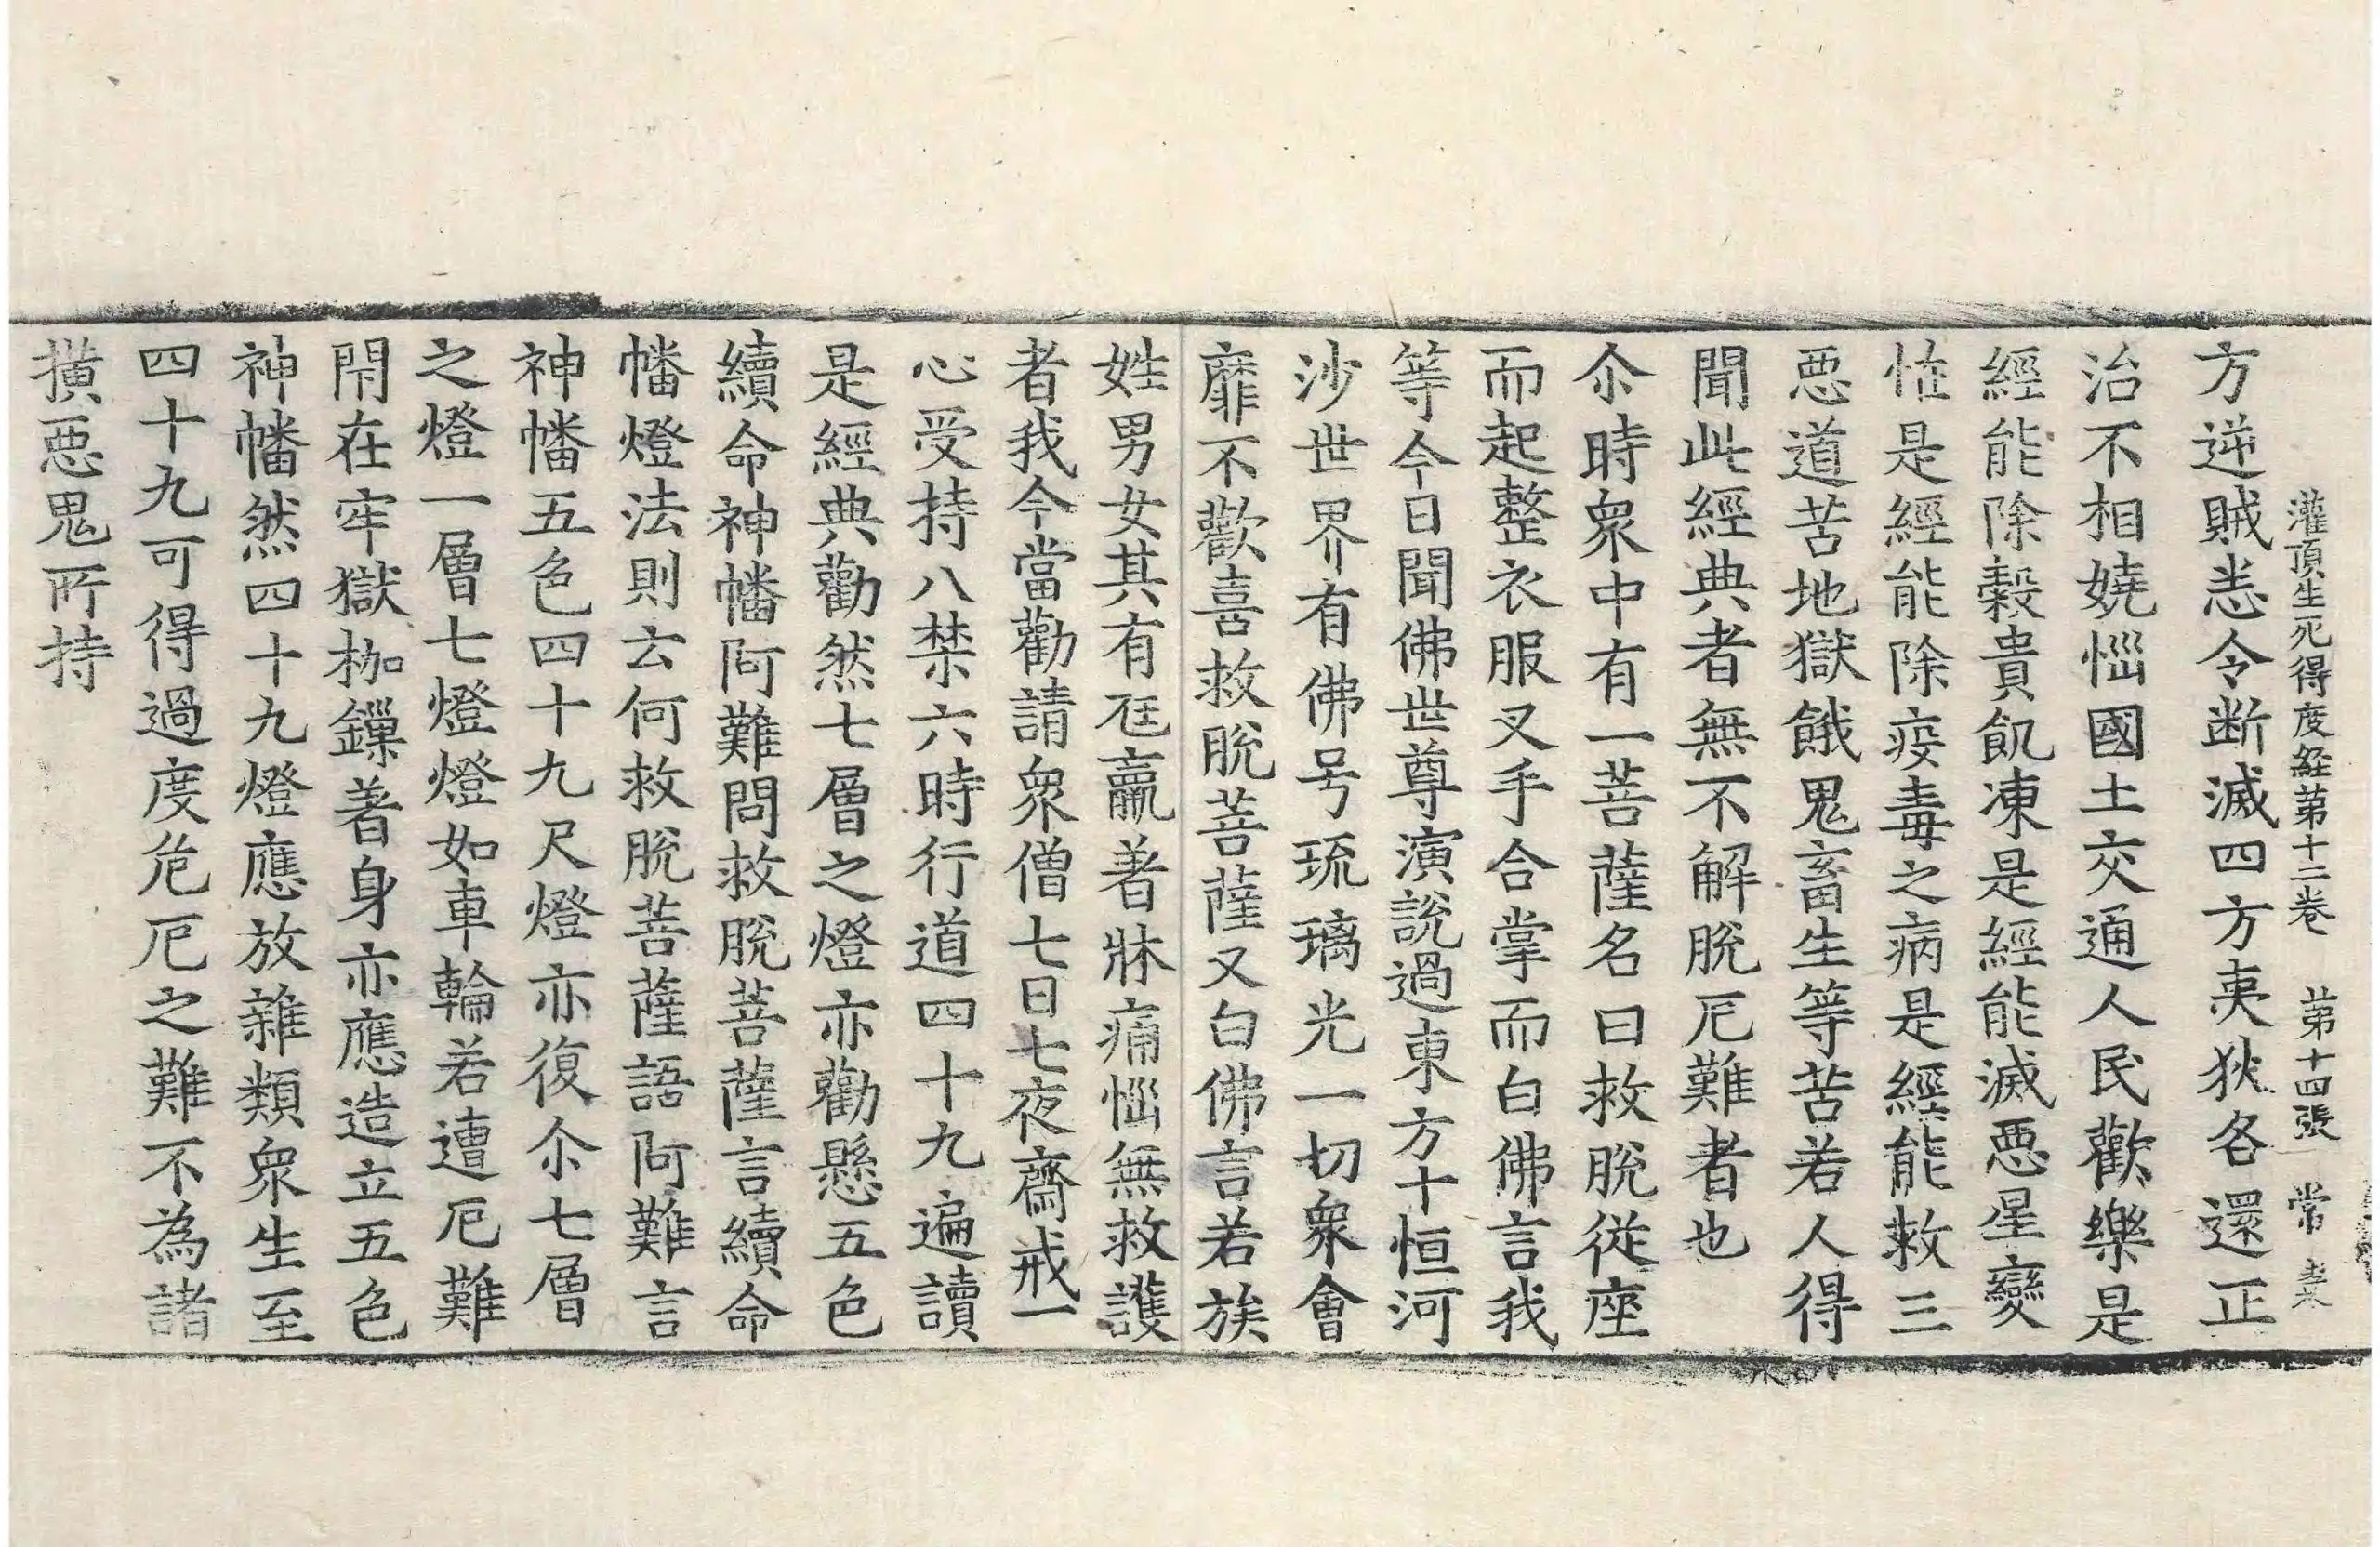 灌頂生死得度経苐十二巻 苐十四張 常
方逆賊恙令断滅四方夷狄各還正
治不相嬈惱國土交通人民歡樂是
經能除糓貴飢凍是經能滅惡星變
恠是經能除疫毒之病是經能救三
惡道苦地獄餓鬼畜生等苦若人得
聞此經典者無不解脫厄難者也
尒時衆中有一菩薩名曰救脫從座
而起整衣服叉手合掌而白佛言我
等今日聞佛世尊演說過東方十恒河
沙世界有佛号琉璃光一切衆會
靡不歡喜救脫菩薩又白佛言若族
姓男女其有尫羸著牀痛惱無救護
者我今當勸請衆僧七日七夜齋戒一
心受持八禁六時行道四十九遍讀
是經典勸然七層之燈亦勸懸五色
續命神幡阿難問救脫菩薩言續命
幡燈法則云何救脫菩薩語阿難言
神幡五色四十九尺燈亦復尒七層
之燈一層七燈燈如車輪若遭厄難
閇在牢獄枷鏁著身亦應造立五色
神幡然四十九燈應放雜類衆生至
四十九可得過度危厄之難不為諸
撗惡鬼所持